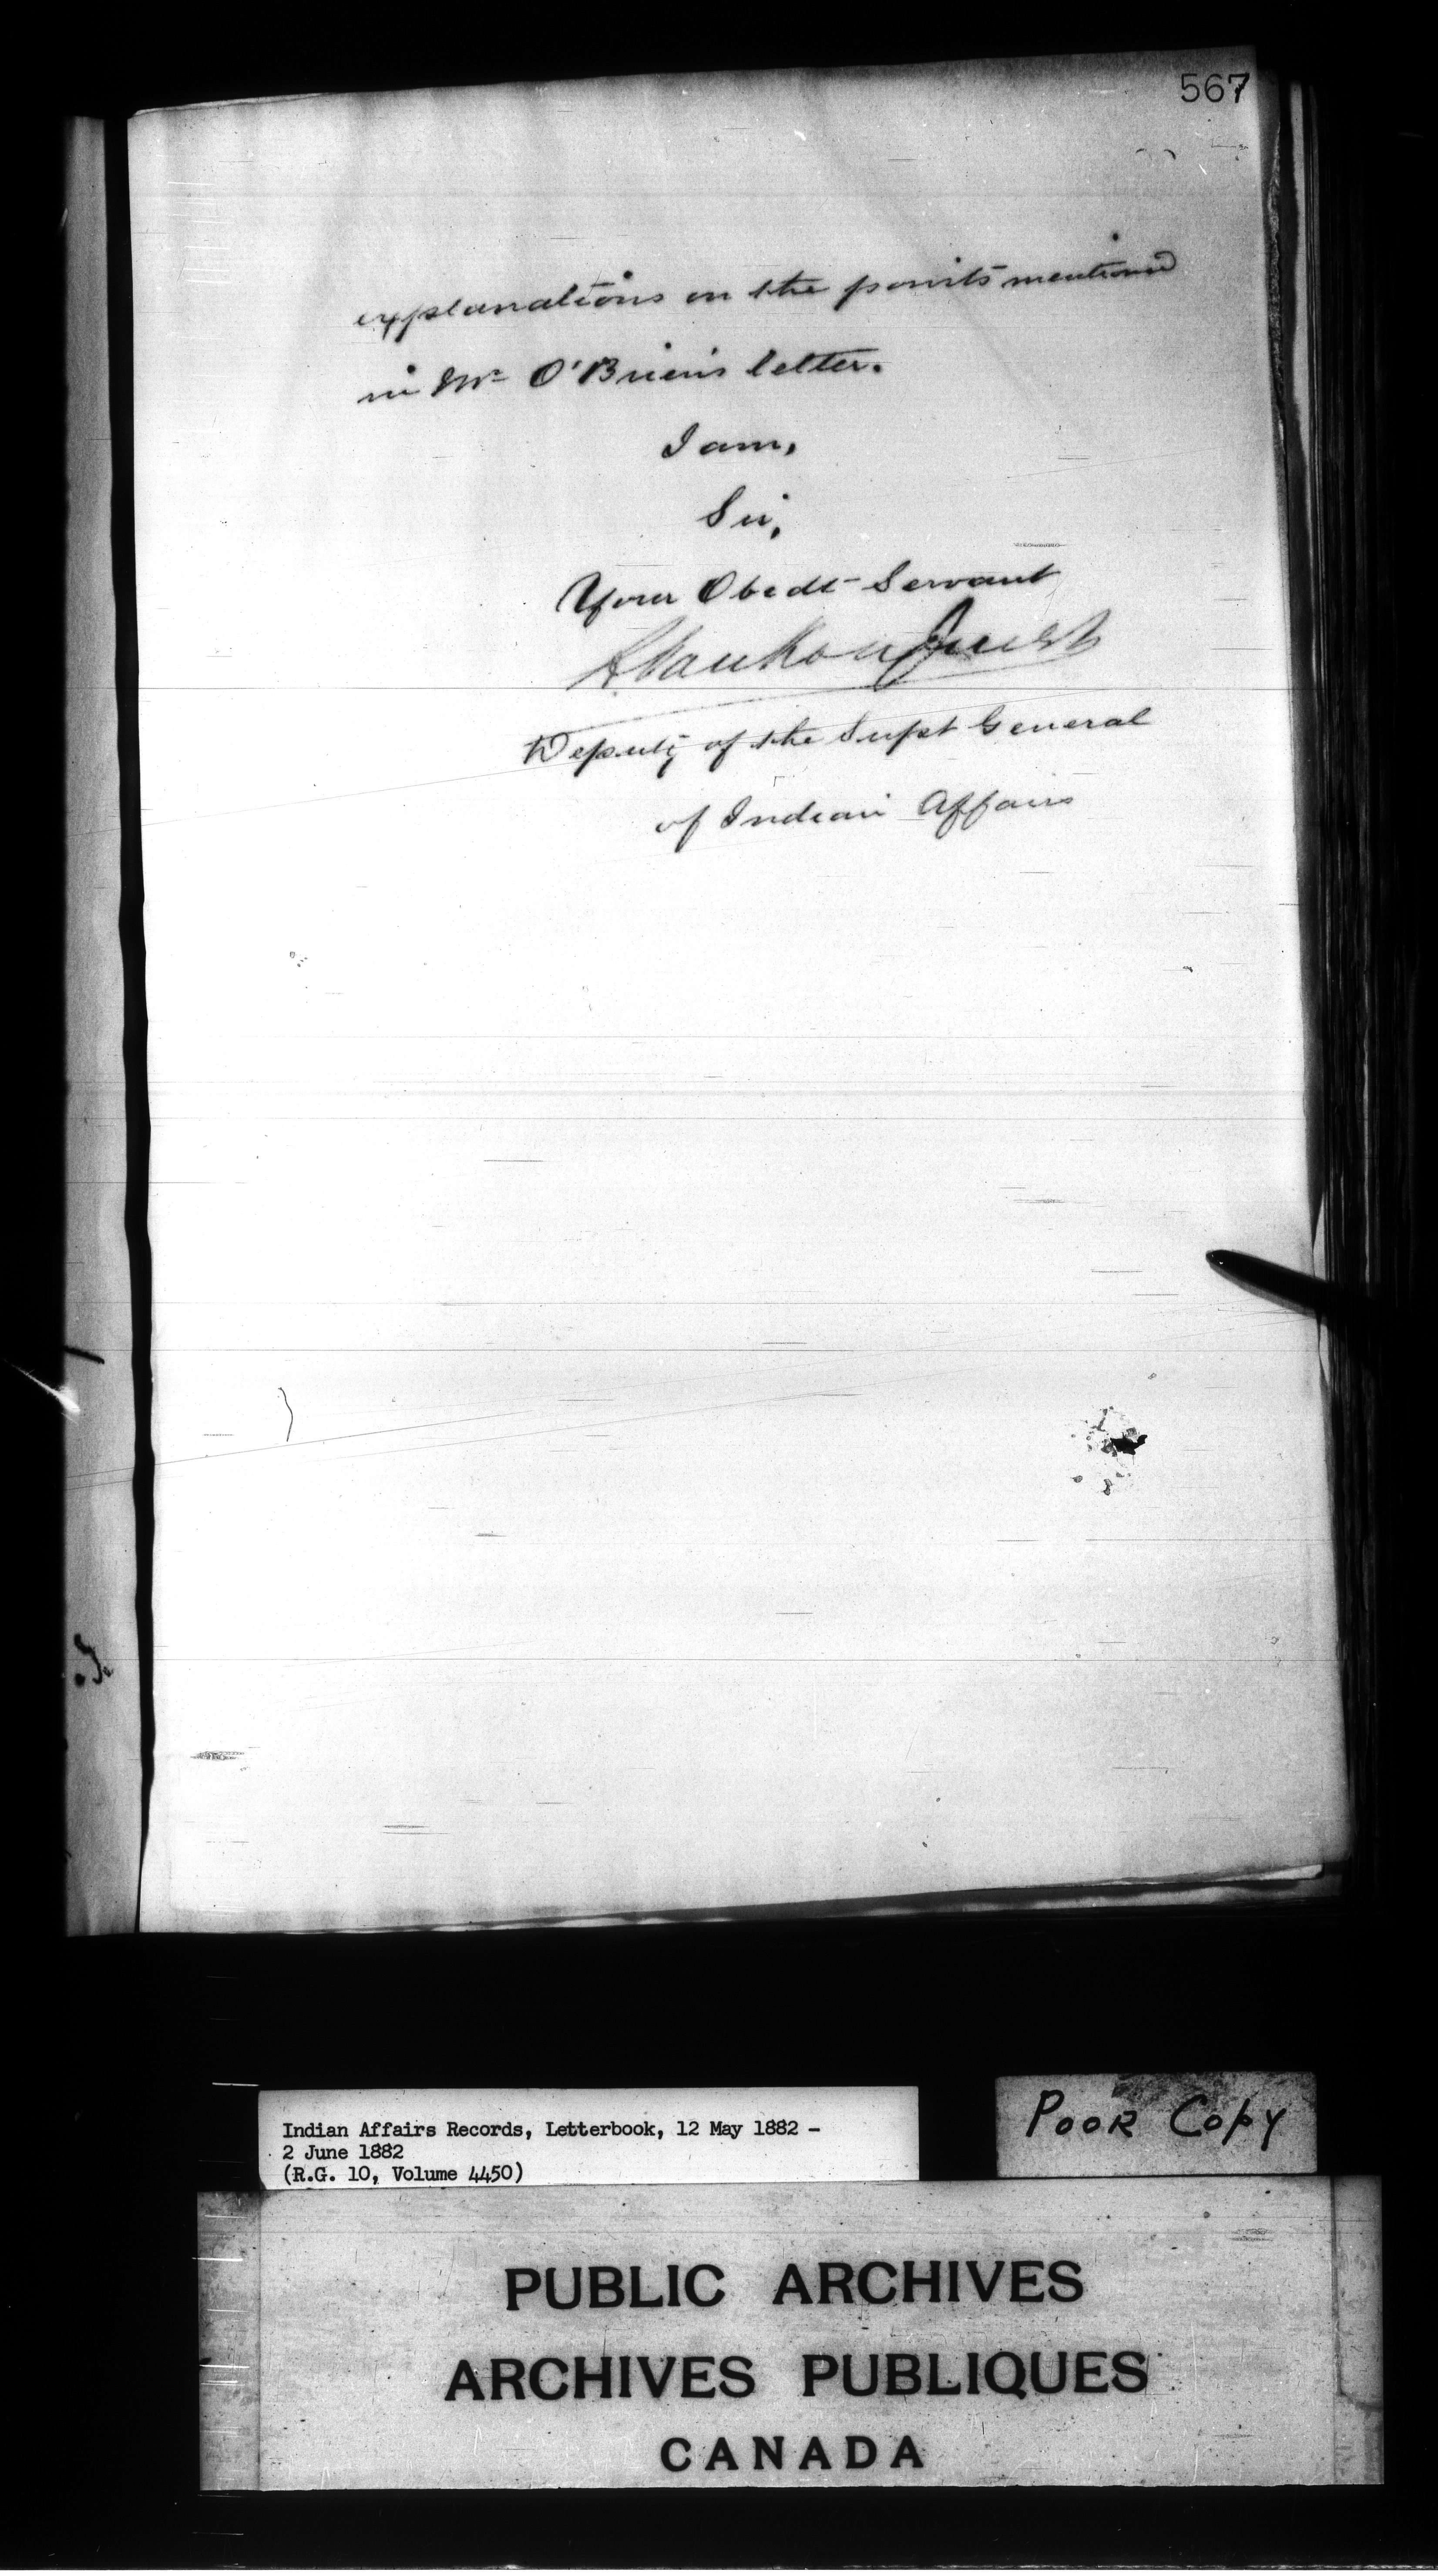 567
explanations on the points mentioned
in Mr O'Brien's letter.
I am,
Sir,
Your Obedt Servant
L. Vankoughnet
Deputy of the Supt General
of Indian Affairs
Indian Affairs Records, Letterbook, 12 May 1882 -
2 June 1882
(R.G. 10, Volume 4450)
POOR COPY
PUBLIC ARCHIVES
ARCHIVES PUBLIQUES
CANADA